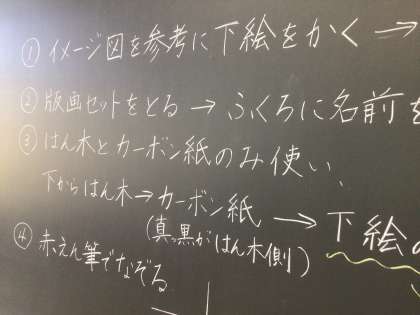 ① イメージ図を参考に下絵をかく →
② 版画セットをとる → ふくろに名前を
③ はん木とカーボン紙のみ使い、
下からはん木→カーボン紙 → 下絵の
(真っ黒がはん木側)
④ 赤えん筆でなぞる